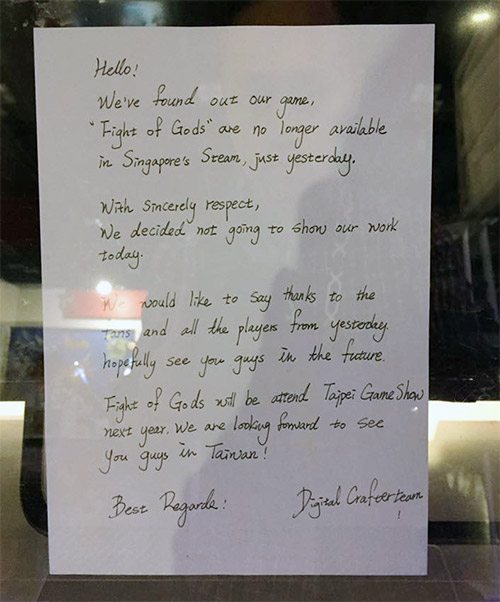 Hello!
We've found out our game,
"Fight of Gods" are no longer available
in Singapore's Steam, just yesterday.
With sincerely respect,
We decided not going to show our work
today.
We would like to say thanks to the
fans and all the players from yesterday.
hopefully see you guys in the future.
Fight of Gods will be attend Taipei Game Show
next year. We are looking forward to see
you guys in Taiwan!
Best Regards! Digital Crafter team
!